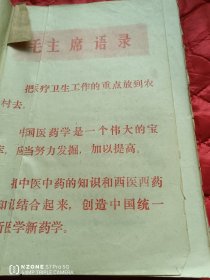 毛主席语录
把医疗卫生工作的重点放到农
村去。
中国医药学是一个伟大的宝
库，应当努力发掘，加以提高。
把中医中药的知识和西医西药
知识结合起来，创造中国统一
医学新药学。
NZONE S7 Pro 5G